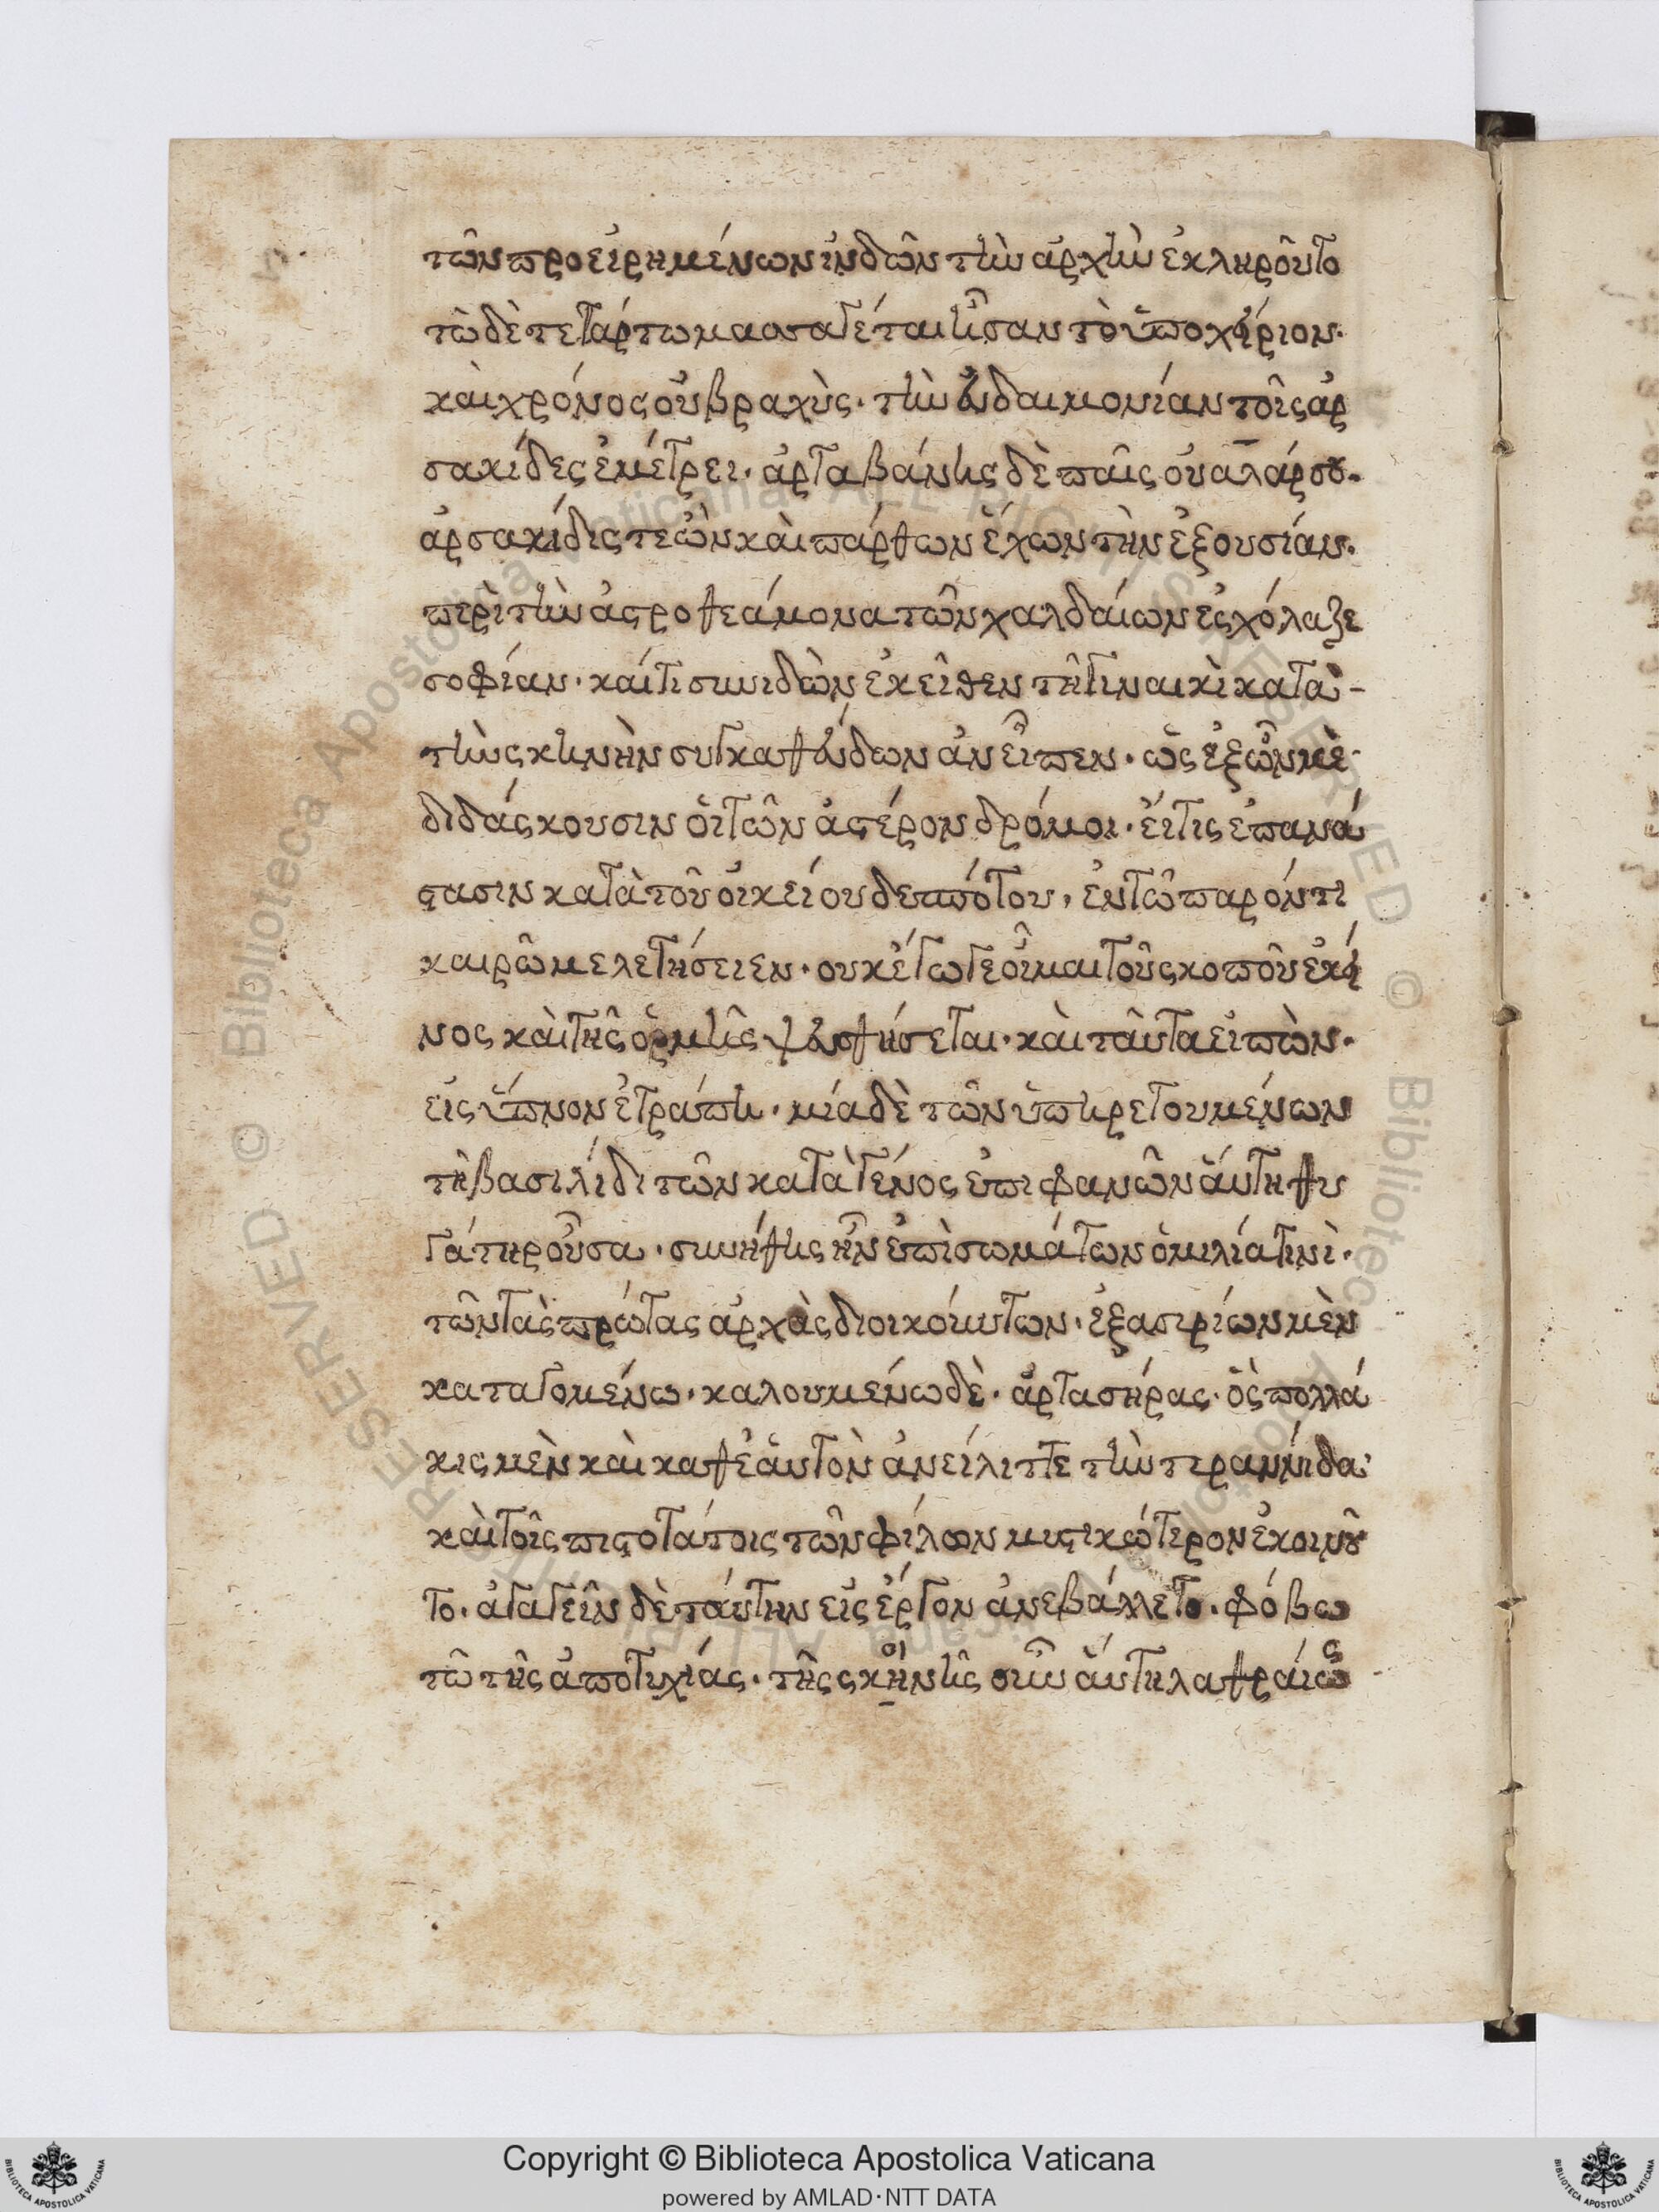 τῶν προειρημένων ἰνδῶν τὴν ἀρχὴν ἐκληροῦτο
τῶ δὲ τετάρτω μασσαγέται ἦσαν τὸ ὑποχείριον.
καὶ χρόνος οὐ βραχὺς. τὴν εὐδαιμονίαν τοῖς ἀρ
σακίδες ἐμέτρει. ἀρταβάνης δὲ παῖς οὐαλάρσου.
ἀρσακίδις τε ὢν καὶ πάρθων ἔχων τὴν ἐξουσίαν.
περὶ τὴν ἀστροθεάμονα τῶν χαλδαίων ἐσχόλαζε
σοφίαν. καί τι συνιδὼν ἐκεῖθεν τῆ γυναικὶ κατὰ -
τὴν σκηνὴν συγκαθεύδων ἀνεῖπεν. ὡς ἐξ ὧν μὲ
διδάσκουσιν οἱ τῶν ἀστέρον δρόμοι. εἴ τις ἐπανά
στασιν κατὰ τοῦ οἰκείου δεσπότου, ἐν τῶ παρόντι
καιρῶ μελετήσειεν. ουκ ἔγωγε οἶμαι τοῦ σκοποῦ ἐκεῖ
νος καὶ τῆς ὁρμῆς ψευσθήσεται. καὶ ταῦτα εἰπὼν.
εἰς ὕπνον ἐτράπη. μία δὲ τῶν ὑπηρετουμένων
τῆ βασιλίδι τῶν κατὰ γένος ἐπιφανῶν αὐτὴ θυ
γάτηρ οὖσα. συνήθης ἦν ἐπὶ σωμάτων ὁμιλία τινὶ.
τῶν τὰς πρώτας ἀρχὰς διοικούντων. ἐξ ασιρίων μὲν
καταγομένω. καλουμένω δὲ. ἀρτασήρας. ὃς πολλά
κις μὲν καὶ καθ ἐαυτὸν ἀνείλιττε τὴν τιραννίδα
καὶ τοῖς πιστοτάτοις τῶν φίλων μυστικώτερον ἐκοινοῦ
το. ἀγαγεῖν δὲ ταύτην εἰς ἔργον ἀνεβάλλετο. φόβω
τῶ τῆς ἀποτυχίας. τῆς σκηνῆς σὺν αὐτῆ λαθραίως
Copyright © Biblioteca Apostolica Vaticana
powered by AMLAD·NTT DATA